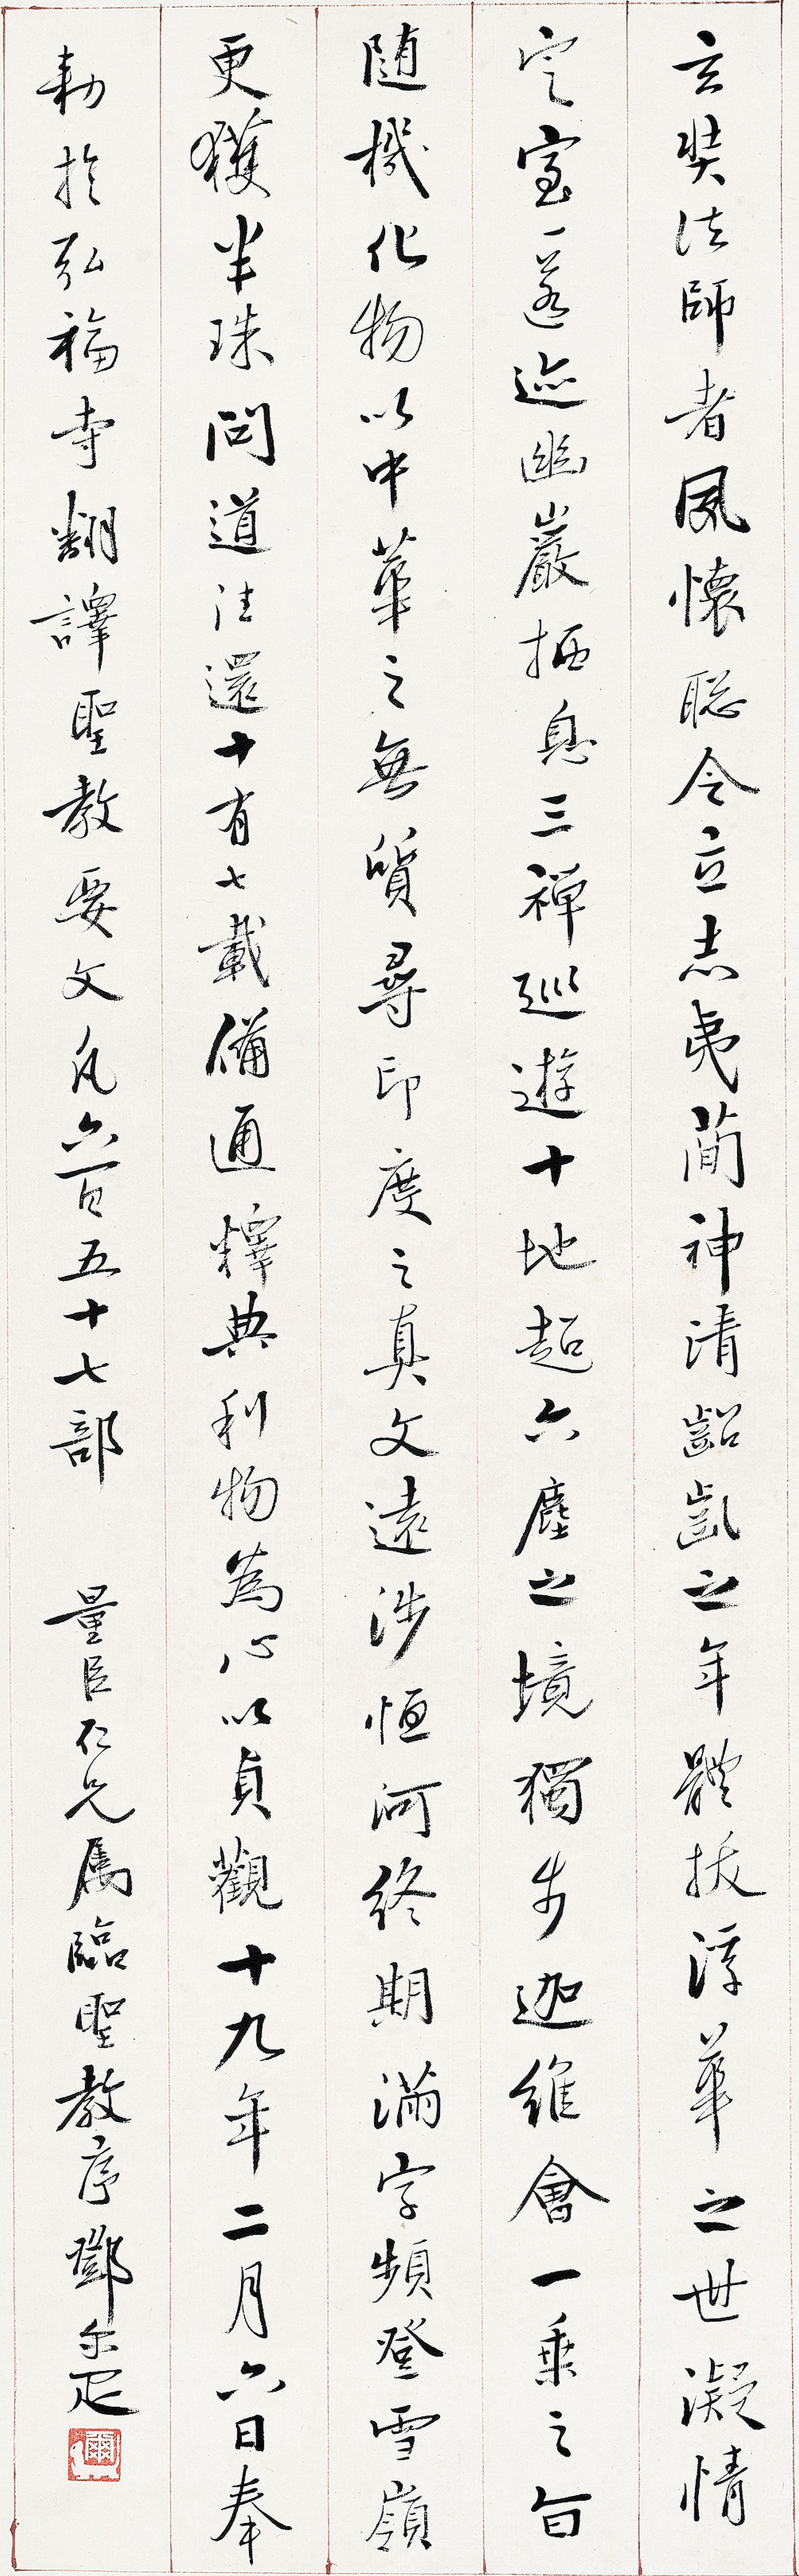 玄奘法師者夙懷聡令立志夷簡神清齠齔之年體拔浮華之世凝情
定室匿迹幽巖栖息三禪巡遊十地超六塵之境獨步迦維會一乘之旨
随機化物以中華之無質尋印度之真文遠涉恒河終期滿字頻登雪嶺
更獲半珠問道往還十有七載備通釋典利物為心以貞觀十九年二月六日奉
勅於弘福寺翻譯聖教要文凡六百五十七部　量臣仁兄属臨聖教序鄧尔疋
爾